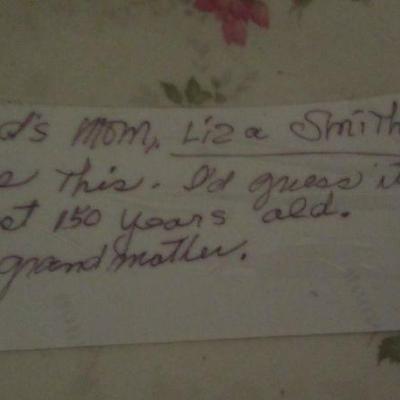 d's Mom, Liza Smith
e This. I'd guess it
st 150 years old.
grandmother.